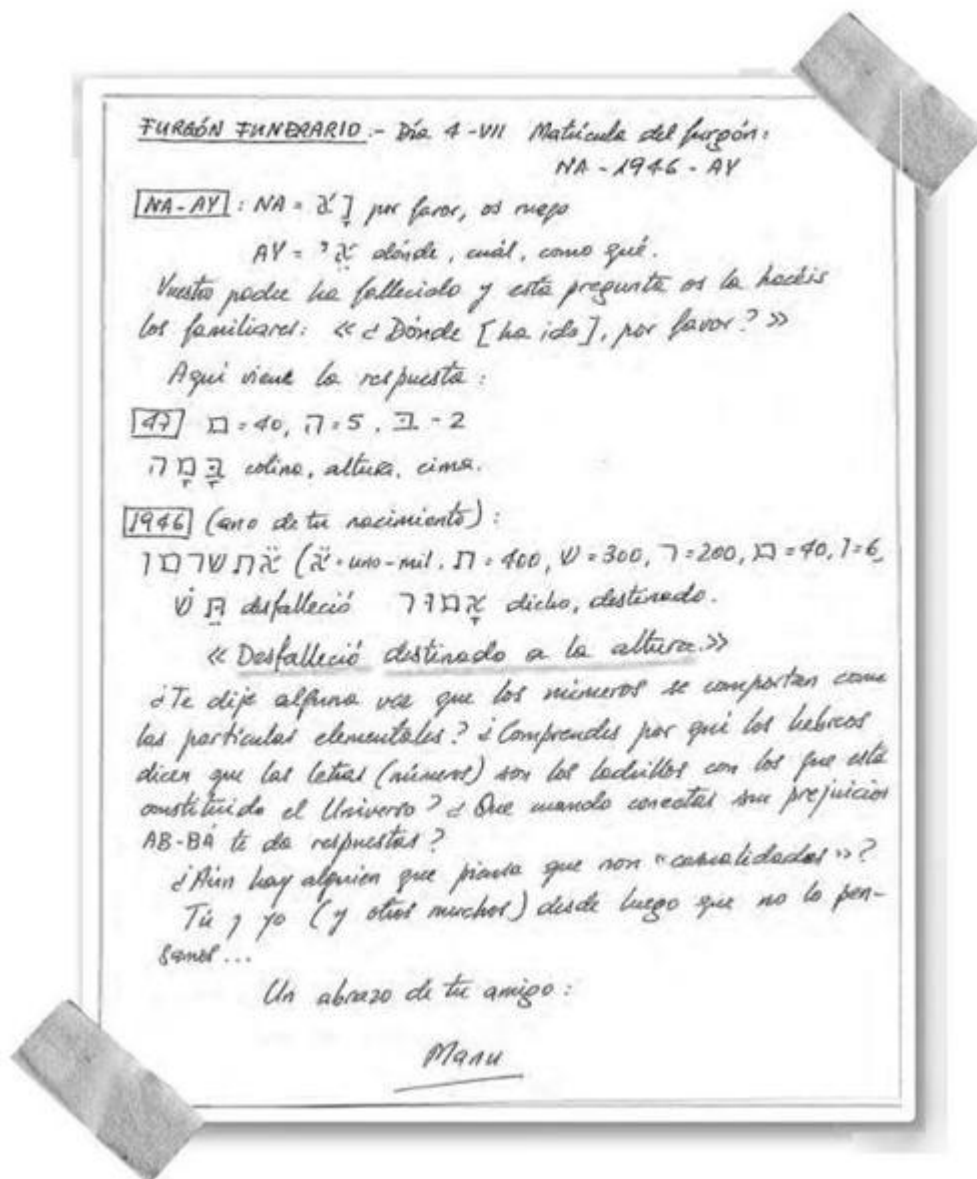 FURGÓN FUNERARIO.- Día 4-VII Matrícula del furgón:
NA-1946-AY
NA-AY: NA = נָא por favor, os ruego
AY = אֵי dónde, cuál, como qué.
Vuestro padre ha fallecido y esta pregunta os la hacéis
los familiares: «¿Dónde [ha ido], por favor?»
Aquí viene la respuesta:
47 מ=40, ה=5, ב-2
בָּמָה colina, altura, cima.
1946 (ano de tu nacimiento):
אתשרמו (א=uno-mil, ת=400, ש=300, ר=200, מ=40, ו=6,
תֵּשׁ desfalleció אָמוּר dicho, destinado.
«Desfalleció destinado a la altura.»
¿Te dije alguna vez que los números se comportan como
las partículas elementales? ¿Comprendes por qué los hebreos
dicen que las letras (números) son los ladrillos con los que está
constituido el Universo? ¿Que cuando conectas sin prejuicios
AB-BÁ te da respuestas?
¿Aún hay alguien que piensa que son "casualidades"?
Tú y yo (y otros muchos) desde luego que no lo pen-
samos...
Un abrazo de tu amigo:
Manu